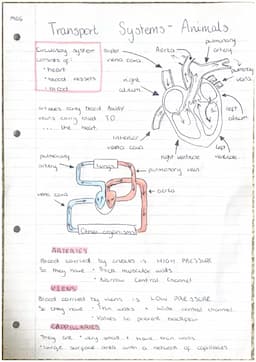 Transport Systems - Animals
Circulatory system
consists of:
• heart
• blood vessets
• blood
Superior
vena cava
Aorta
pulmonary
artery
pulmonary
vein
right
atrium
left
atrium
Arteries carry blood AWAY
Veins carry blood TO
.... the heart.
inferior
vena cava
right ventricle
left
ventricle
pulmonary
artery
Lungs
pulmonary vein
vena cava
aorta
Other organisms
ARTERIES
Blood carried by arteries is HIGH PRESSURE
So they have • Thick muscular walls
• Narrow central channel
VEINS
Blood carried by veins is LOW PRESSURE
So they have • Thin walls • Wide central channel
• Valves to prevent backflow
CAPILLARIES
• They are • very small • Have thin walls
• Large surface area with a network of capillaries